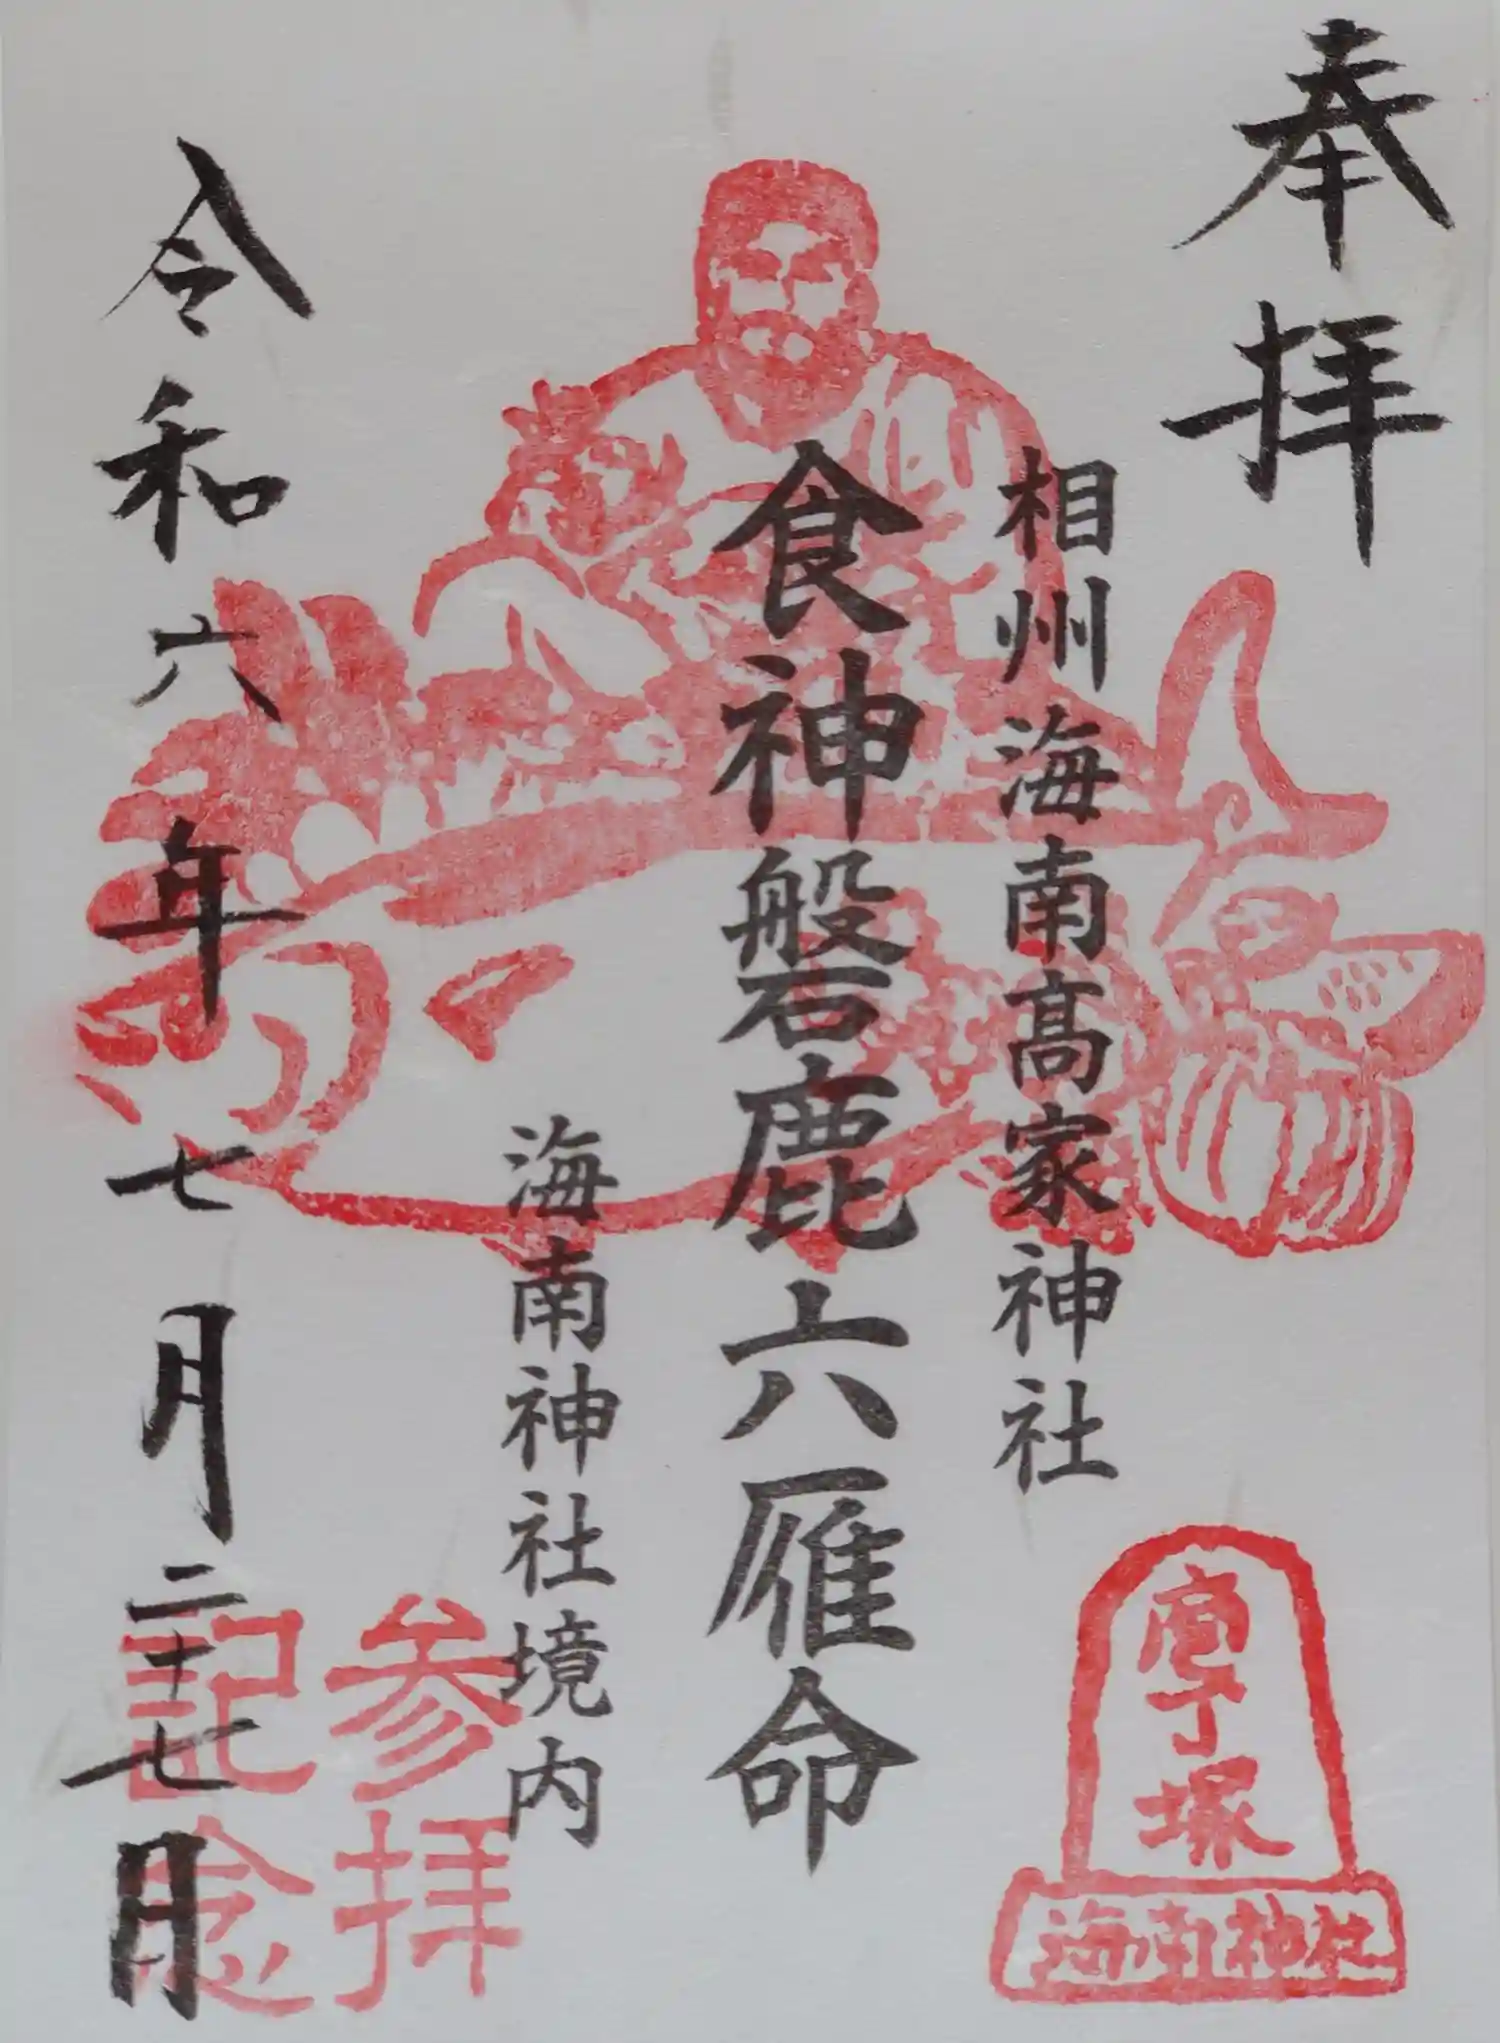 奉拝
相州海南髙家神社
食神磐鹿六雁命
海南神社境内
令和六年七月二十七日
庖丁塚
海南神社
参拝
記念